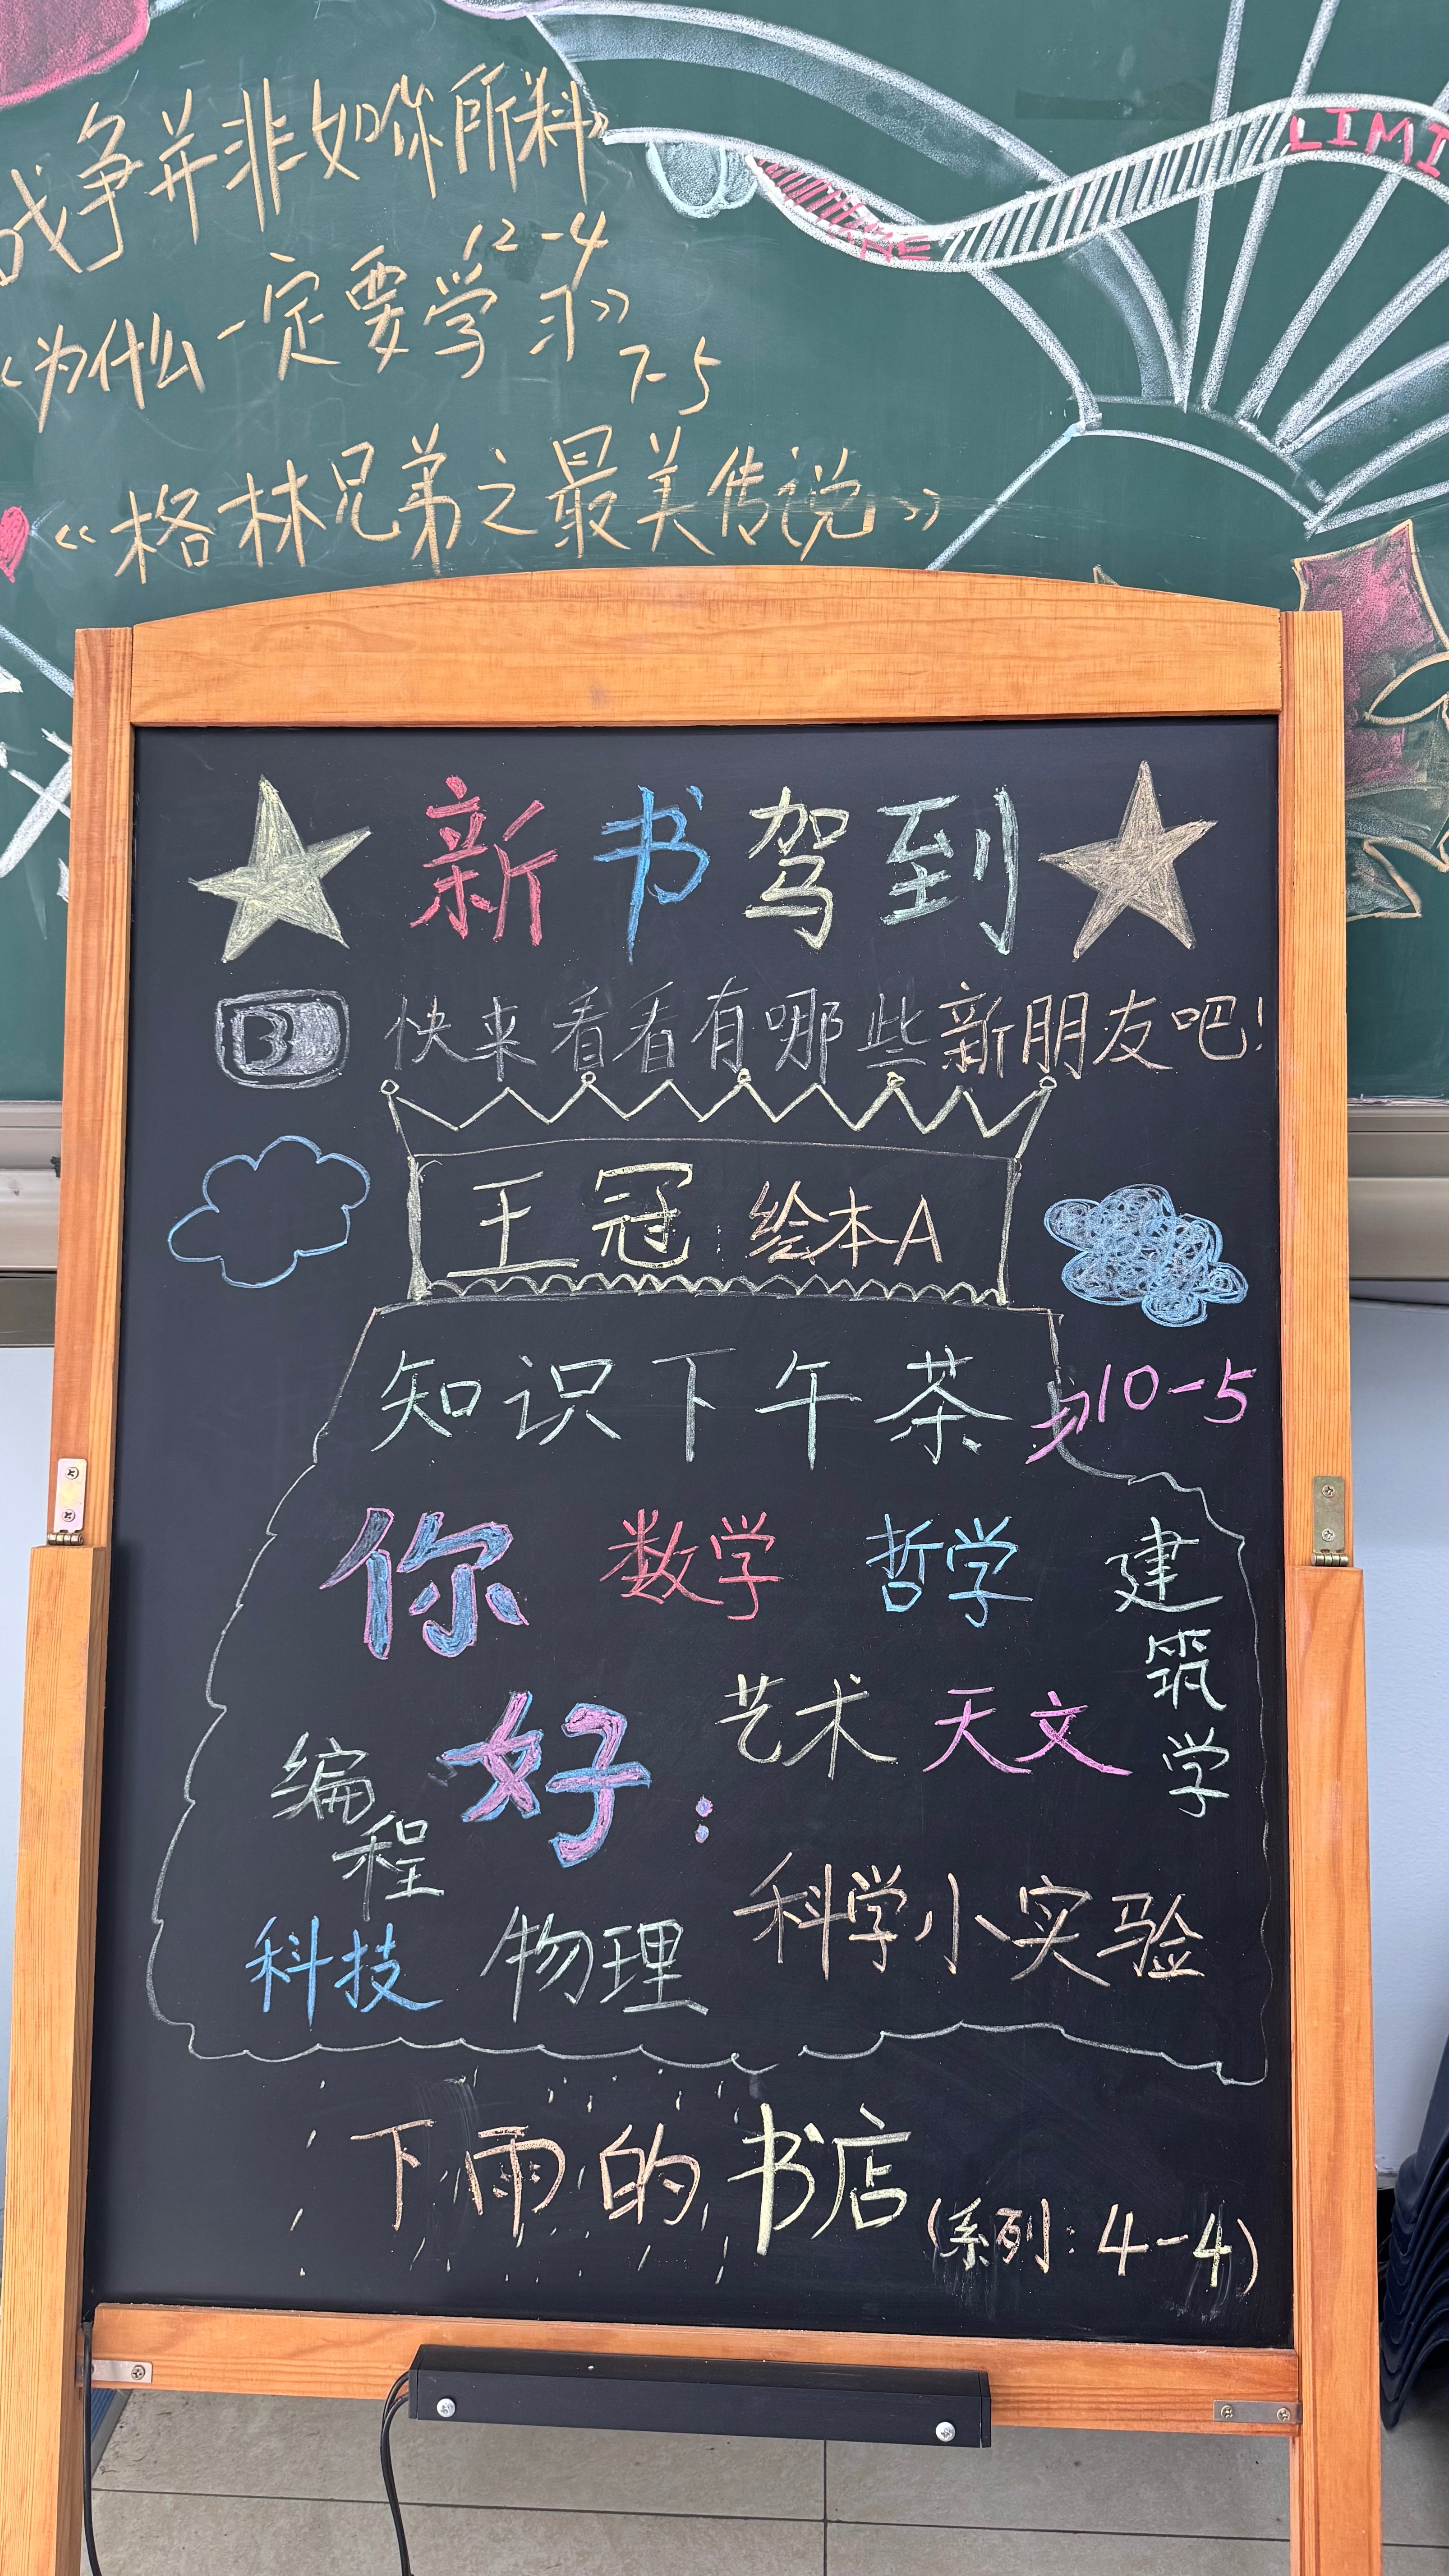 战争并非如你所料》
12-4
《为什么一定要学习》
7-5
《格林兄弟之最美传说》
LIMI
新书驾到
B 快来看看有哪些新朋友吧!
王冠: 绘本A
知识下午茶 10-5
你 数学 哲学 建筑学
好: 艺术 天文
编程
科技 物理 科学小实验
下雨的书店 (系列: 4-4)